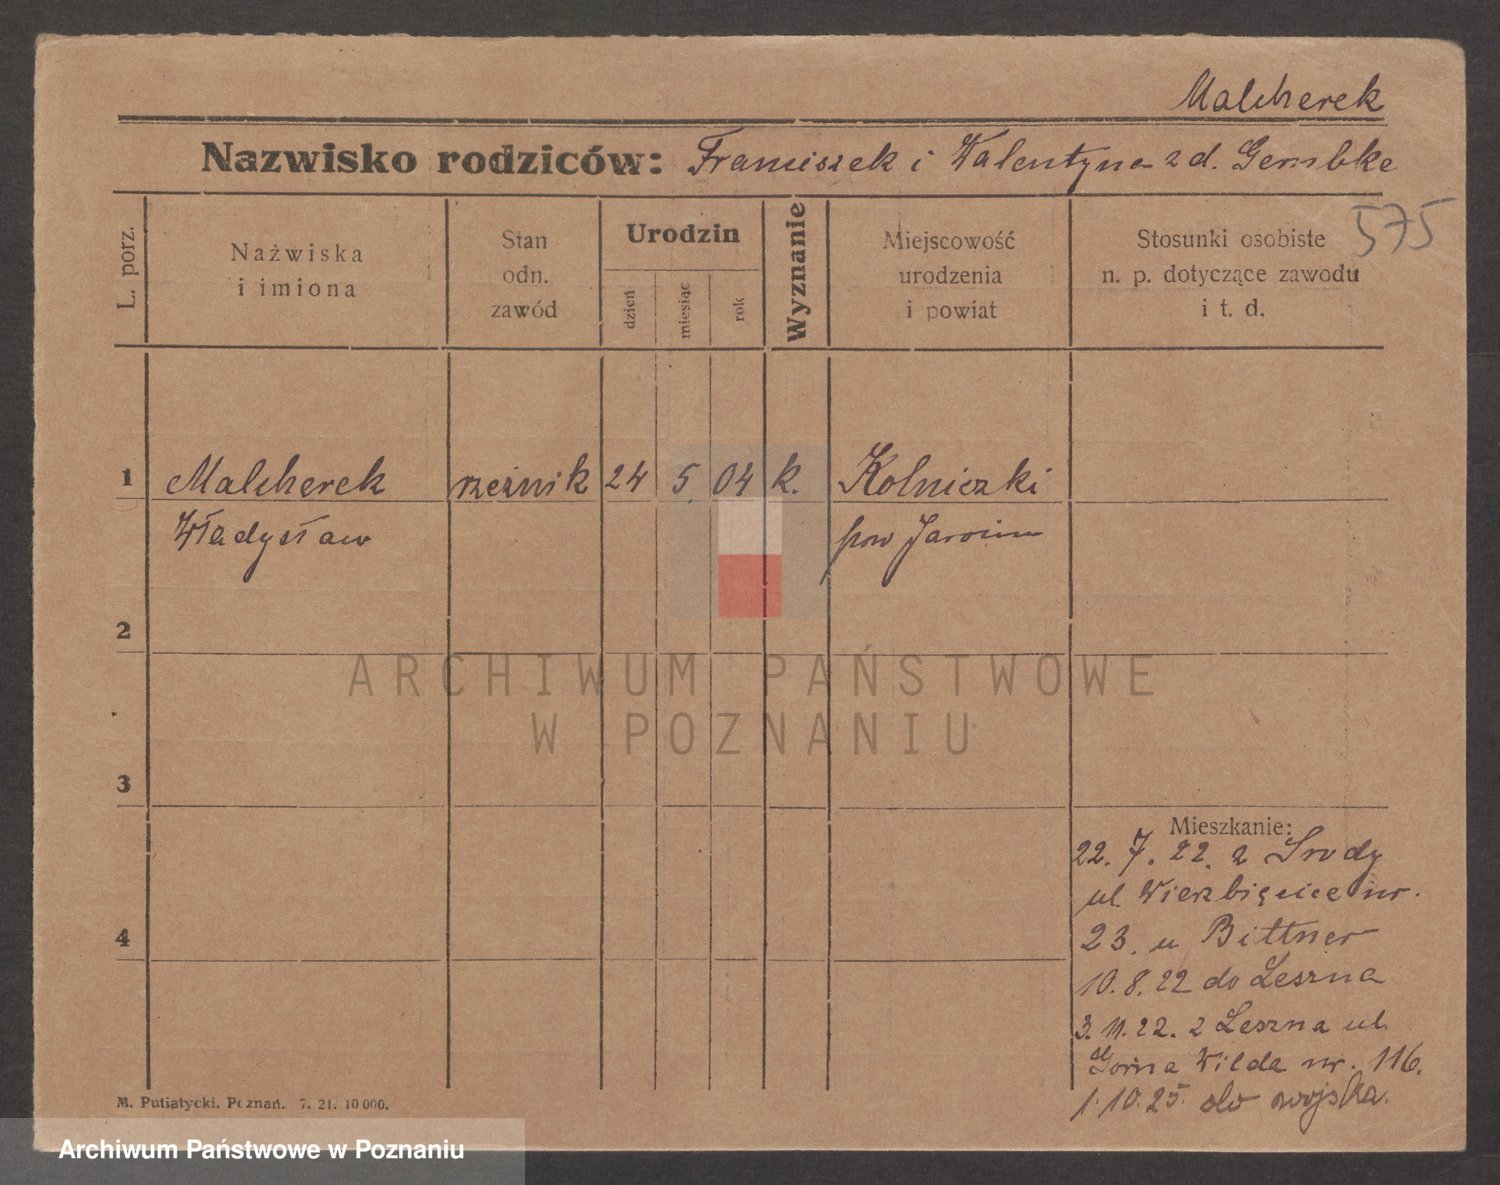 Malcherek
Nazwisko rodziców: Franciszek i Walentyna z d. Gembke
575
L. porz.
Nażwiska
i imiona
Stan
odn.
zawód
Urodzin
dzień
miesiąc
rok
Wyznanie
Miejscowość
urodzenia
i powiat
Stosunki osobiste
n. p. dotyczące zawodu
i t. d.
1 Malcherek rzeźnik 24 5. 04 k. Kolniczki
Władysław pow Jarocin
2
ARCHIWUM PAŃSTWOWE
W POZNANIU
3
Mieszkanie:
22. 7. 22. z Środy
ul. Wierzbięcice nr.
4
23. u Bittner
10. 8. 22 do Leszna
3. 11. 22. z Leszna ul.
Górna Wilda nr. 116.
1. 10. 25. do wojska.
M. Putiatycki. Poznań. 7. 21. 10 000.
Archiwum Państwowe w Poznaniu